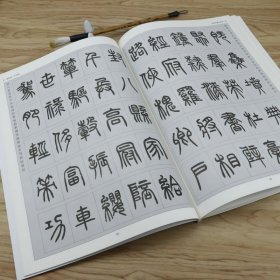 既集墳典亦
聚群英杜稿
鍾隸漆書壁
經府羅將相
路俠槐卿戶
封八縣家給
千兵高冠陪
輦驅轂振纓
世祿侈富車
駕肥輕策功